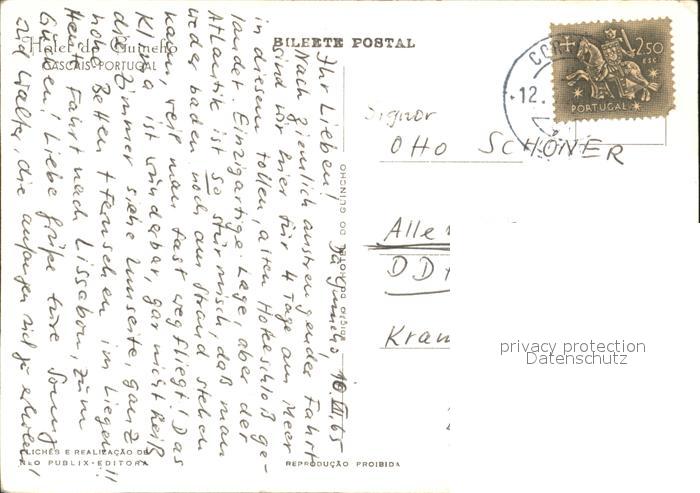 Hotel do Guincho
CASCAIS-PORTUGAL
BILHETE POSTAL
2$50
ESC
PORTUGAL
12.
Signor
OttO SCHÖNER
Alle
DD
Kram
privacy protection
Datenschutz
Do Guincho 10.III 65
Ihr Lieben!
Nach ziemlich anstrengender Fahrt
sind wir hier für 4 Tage am Meer
in diesem tollen, alten Hotelschloß ge-
landet. Einzigartige Lage, aber der
Atlantik ist so stürmisch, daß man
weder baden noch am Strand stehen
kann, weil man fast weg fliegt! Das
Klima ist wunderbar, gar nicht heiß
die Zimmer siehe Umseite, ganz
hohe Betten + Fernsehen im Liegen!!
Heute Fahrt nach Lissabon, zum
Gulbenki Liebe Grüße Eure Sonny
und Walter, die anfangen sich zu erholen!
CLICHÉS E REALIZAÇÃO DE
NEO PUBLIX-EDITORA
REPRODUÇÃO PROIBIDA